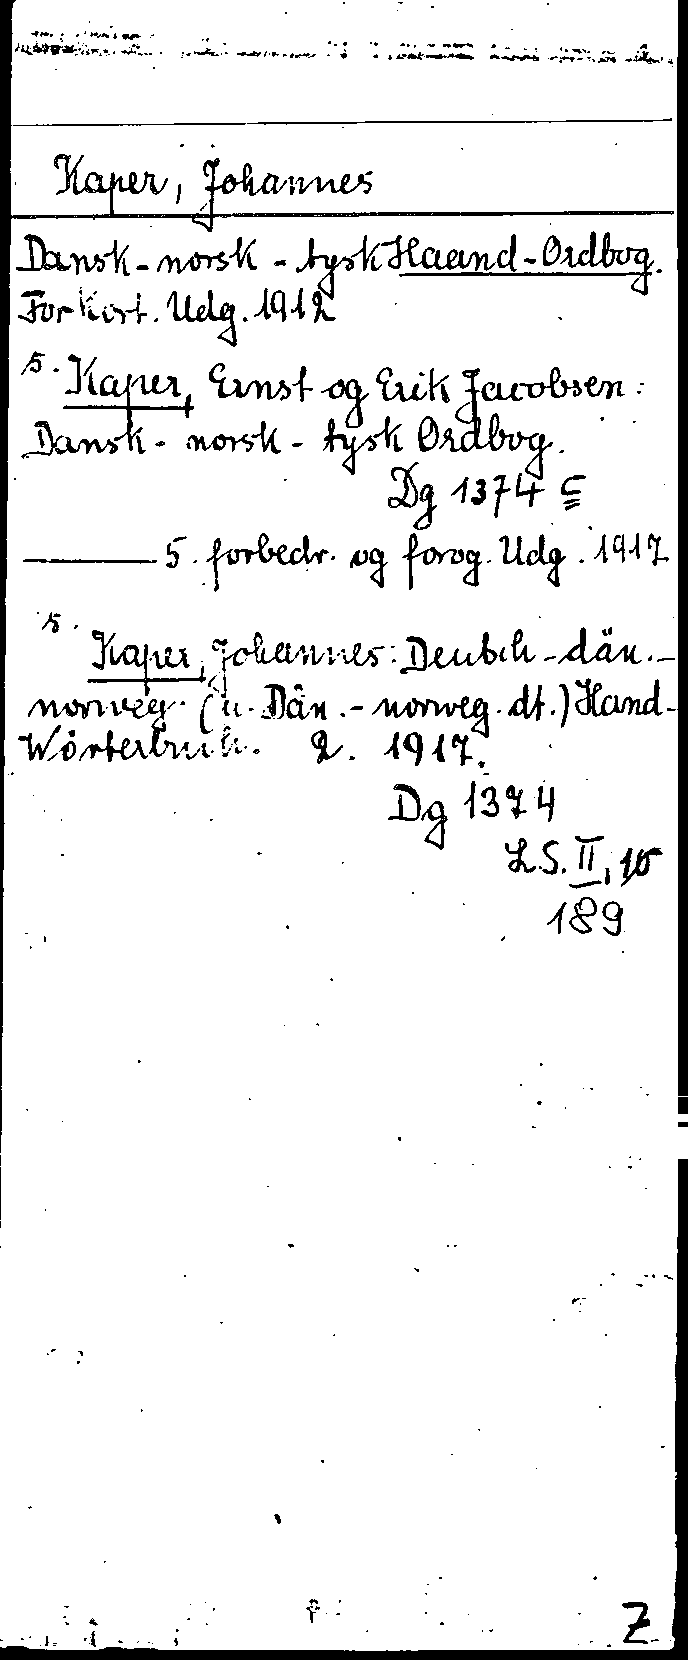 Kaper, Johannes
Dansk-norsk-tysk Haand-Ordbog.
Forkort. Udg. 1912
s. Kaper, Ernst og Erik Jacobsen:
Dansk-norsk-tysk Ordbog.
Dg 1374 c
——— 5. forbedr. og forøg. Udg. 1917
s. Kaper, Johannes: Deutsch-dän.-
norweg. (u. Dän.-norweg. dt.) Hand-
Wörterbuch. 2. 1917.
Dg 1374
L.S. II, 10
189
Z